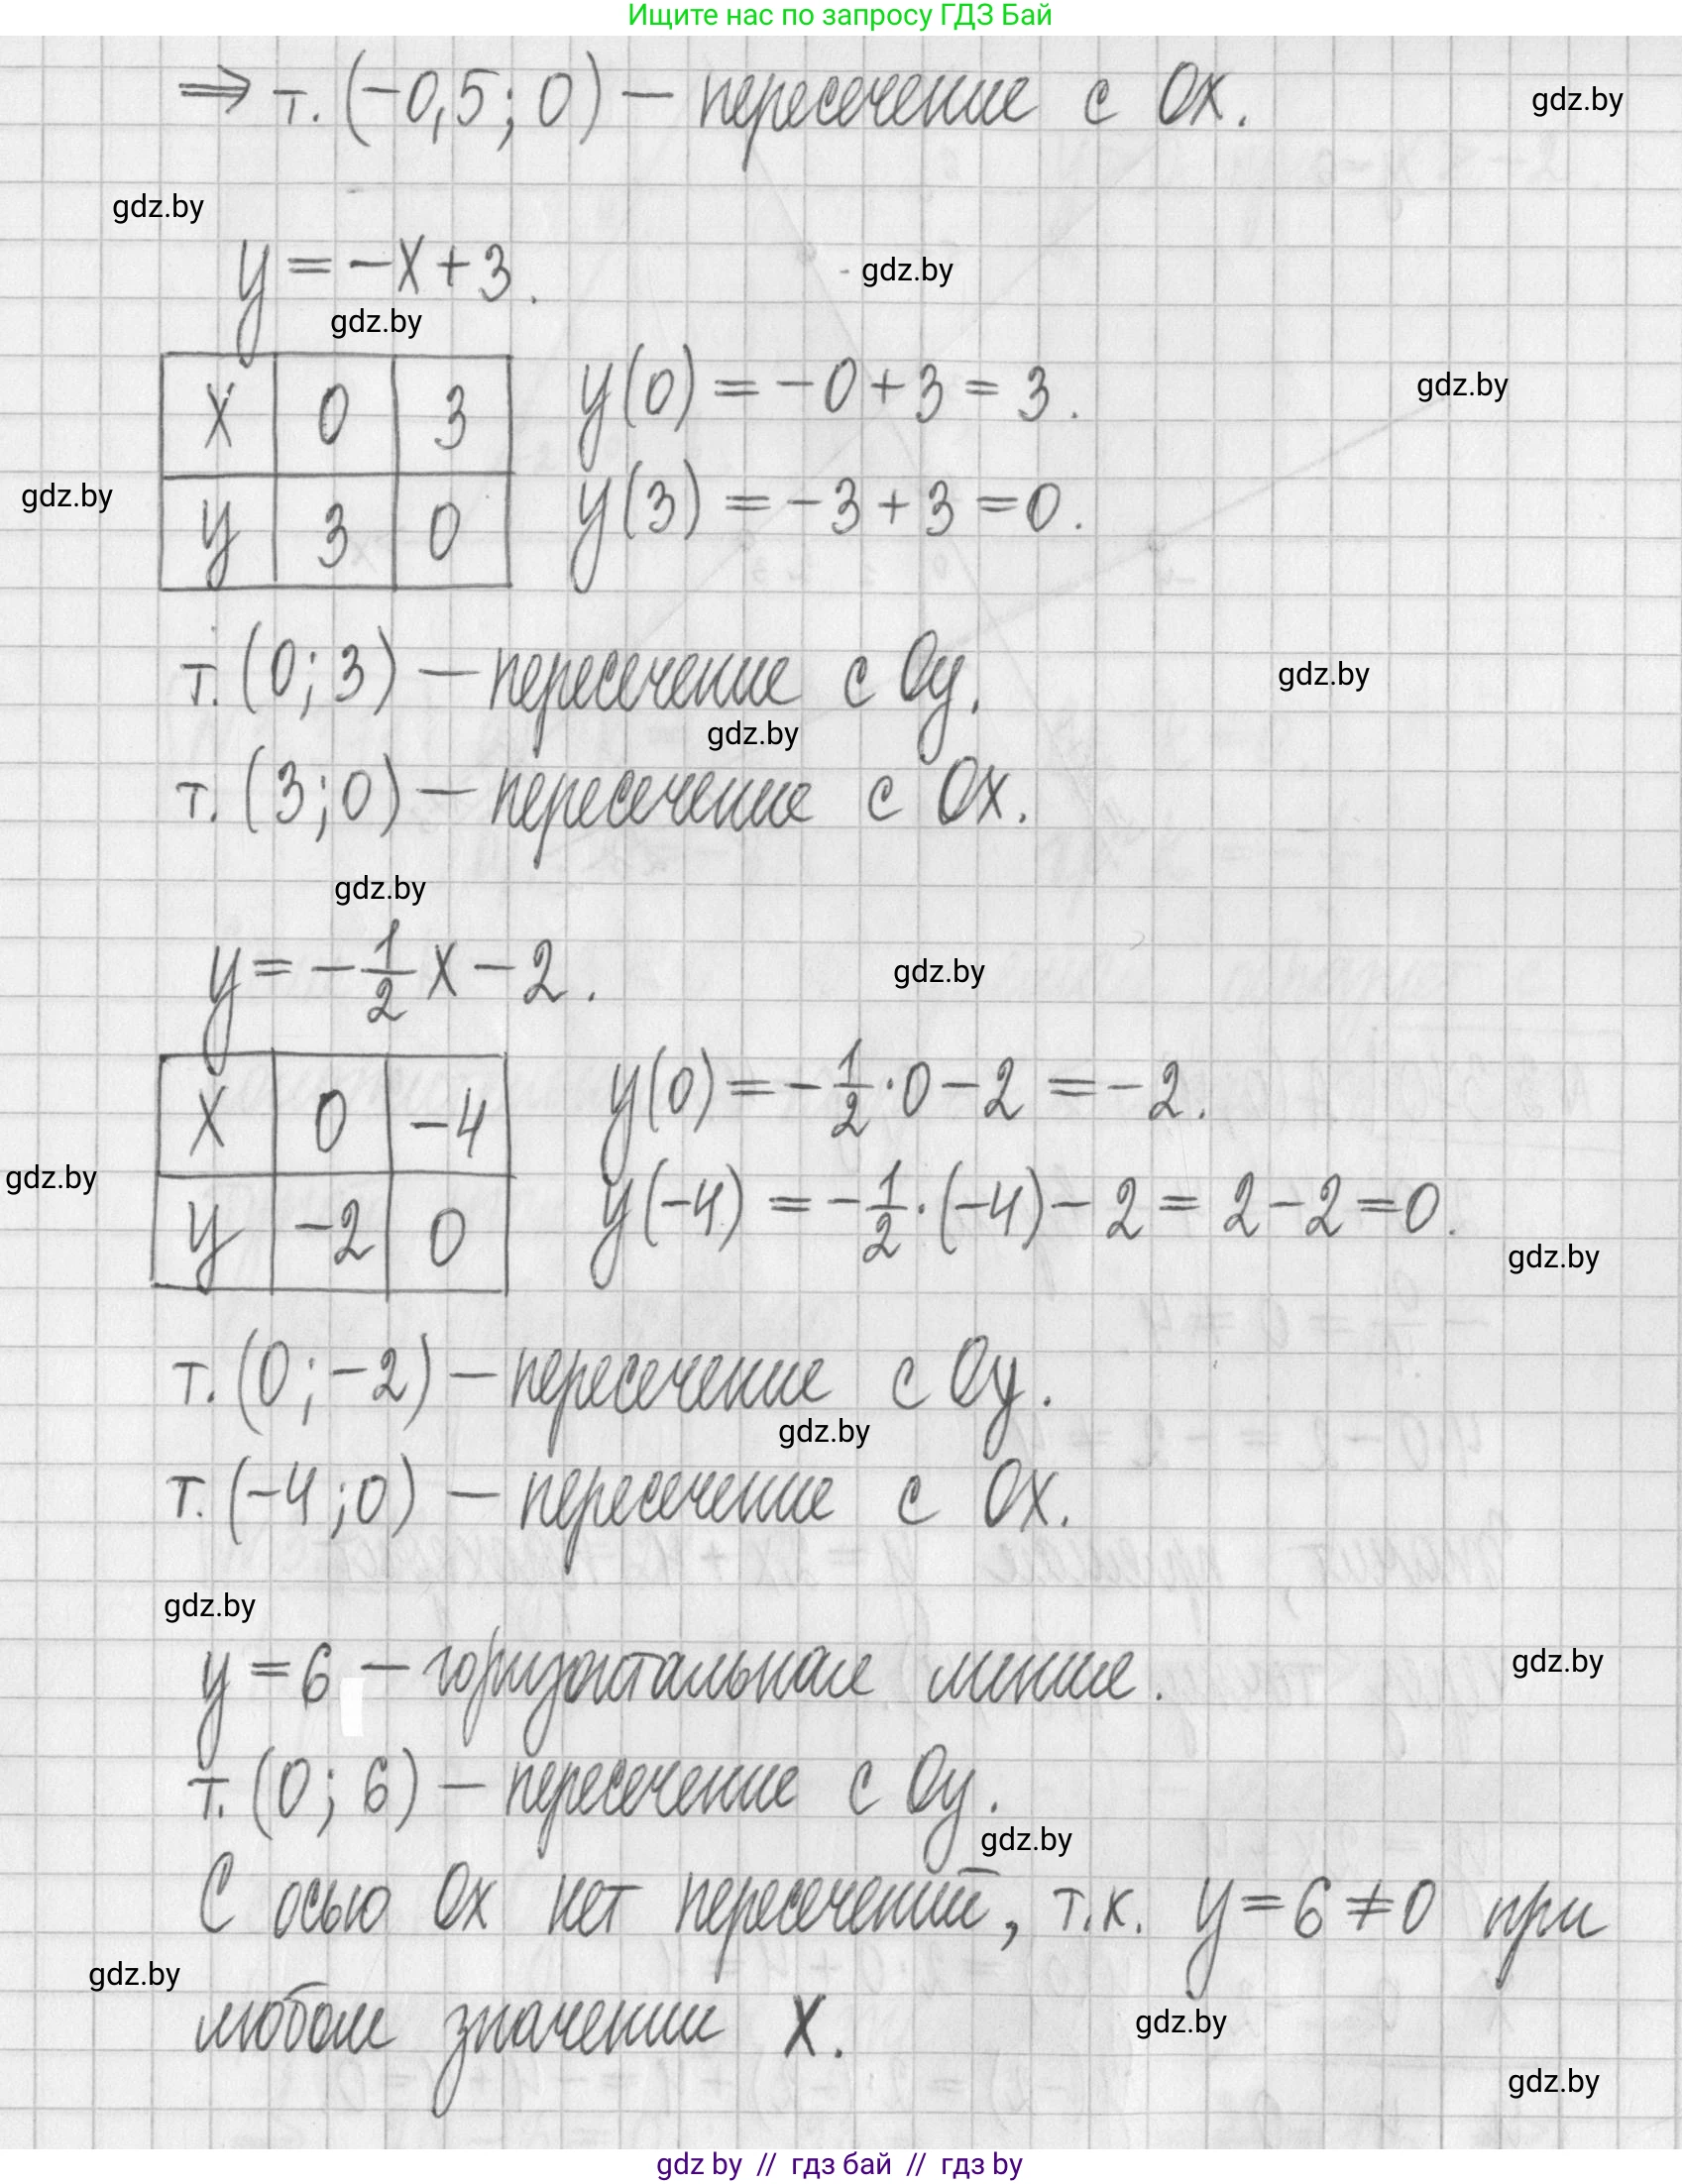 Ищите нас по запросу ГДЗ Бай
⇒ т. (−0,5; 0) — пересечение с Ox.
gdz.by
gdz.by
y = −x + 3.
gdz.by
gdz.by
x 0 3
y(0) = −0 + 3 = 3.
gdz.by
gdz.by
y 3 0
y(3) = −3 + 3 = 0.
т. (0; 3) — пересечение с Oy.
gdz.by
gdz.by
т. (3; 0) — пересечение с Ox.
gdz.by
y = −1/2 x − 2.
gdz.by
x 0 −4
y(0) = −1/2 · 0 − 2 = −2.
gdz.by
y −2 0
y(−4) = −1/2 · (−4) − 2 = 2 − 2 = 0.
gdz.by
т. (0; −2) — пересечение с Oy.
gdz.by
т. (−4; 0) — пересечение с Ox.
gdz.by
y = 6 — горизонтальная линия.
gdz.by
т. (0; 6) — пересечение с Oy.
gdz.by
С осью Ox нет пересечений, т.к. y = 6 ≠ 0 при
gdz.by
любом значении x.
gdz.by
gdz.by
gdz by // гдз бай // гдз by